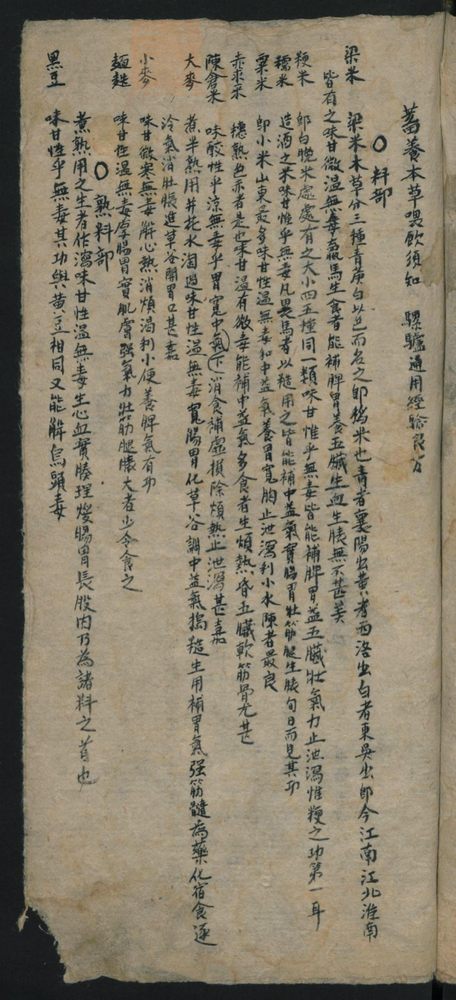 畜養本草喂飲須知　騾驢通用經验良方
○料部
梁米　梁米本草分三種青黄白以色而名之即秫米也青者襄陽出黄者西洛出白者東吳出即今江南江北淮南
皆有之味甘微温無毒喂馬生食者能補脾胃養五臟生血生膘無不甚美
粳米　即白晚米處處有之大小四五種同一類味甘惟平無毒皆能補脾胃益五臟壮氣力止泄瀉惟粳之功第一耳
糯米　造酒之米味甘惟平無毒凡喂馬者以糙用之皆能補中益氣實腸胃壮筋腿生膘旬日而見其功
粟米　即小米山東最多味甘性温無毒和中益氣養胃寬胸止泄瀉利小水陳者最良
赤黍米　穗熟色赤者是也味甘温有微毒能補中益氣多食者生煩熱昏五臟軟筋骨尤甚
陳倉米　味酸性平凉無毒平胃寬中氣下消食補虚損除煩熱止泄瀉甚嘉
大麥　煮半熟用井花水淘過味甘性温無毒寬腸胃化草谷調中益氣搗糙生用補胃氣强筋髓為藥化宿食逐
冷氣消壮脹進草谷開胃口甚嘉
小麥　味甘微寒無毒解心熱消煩渴利小便養脾氣有功
麺麯　味甘性温無毒厚腸胃實肌膚强氣力壮筋腿膘大者少令食之
○熟料部
煮熟用之生者作瀉味甘性温無毒生心血實腠理煖腸胃長股肉乃為諸料之首也
黑豆　味甘性平無毒其功與黄豆相同又能解烏頭毒